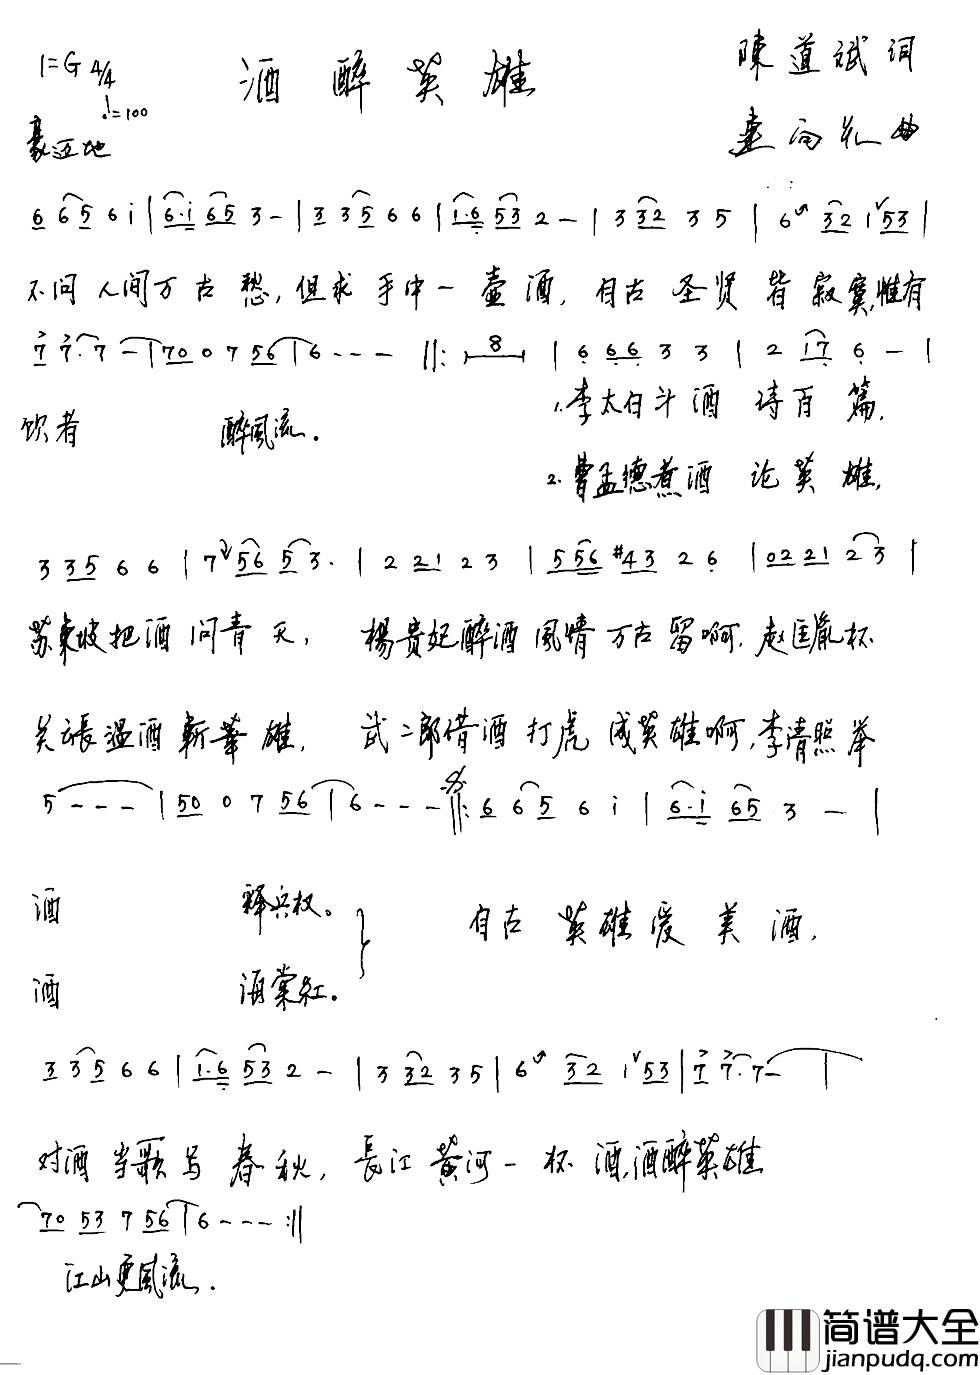 1=G 4/4 酒醉英雄 陳道斌词
♩=100
豪迈地 曲
6 6 5 6 i | 6·i 6 5 3 - | 3 3 5 6 6 | 1·6 5 3 2 - | 3 3 2 3 5 | 6 3 2 1 5 3 |
不问人间万古愁,但求手中一壶酒,自古圣贤皆寂寞,惟有
7 7·7 - | 7 0 0 7 5 6 | 6 - - - ‖: 8 | 6 6 6 3 3 | 2 1 7 6 - |
饮者 醉風流.
1.李太白斗酒诗百篇,
2.曹孟德煮酒论英雄,
3 3 5 6 6 | 7 5 6 5 3· | 2 2 1 2 3 | 5 5 6 #4 3 2 6 | 0 2 2 2 1 2 3 |
苏東坡把酒问青天, 楊贵妃醉酒風情万古留啊,赵匡胤杯
关張温酒斬華雄, 武二郎借酒打虎成英雄啊,李清照举
5 - - - | 5 0 0 7 5 6 | 6 - - - ‖: 6 6 5 6 i | 6·i 6 5 3 - |
酒 释兵权。
自古英雄爱美酒,
酒 海棠紅。
3 3 5 6 6 | 1·6 5 3 2 - | 3 3 2 3 5 | 6 3 2 1 5 3 | 7 7·7 - |
对酒当歌写春秋, 長江黄河一杯酒,酒醉英雄
7 0 5 3 7 5 6 | 6 - - - :‖
江山更風流.
简谱大全
jianpudq.com